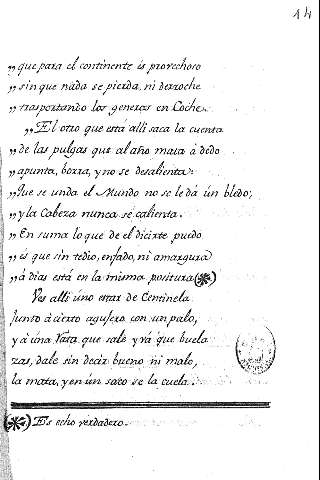 14
„ que para el continente es provechoso
„ sin que nada se pierda, ni derroche
„ trasportando los generos en Coche.
„ El otro que está alli saca la cuenta
„ de las pulgas que al año mata á dedo
„ apunta, borra, y no se desalienta.
„ Que se unda el Mundo no se le dá un bledo;
„ y la Cabeza nunca se calienta.
„ En suma lo que de el dicirte puedo
„ es que sin tedio, enfado, ni amargura
„ á dias está en la misma positura (*)
Ves alli úno estar de Centinela
junto á cierto agujero con un palo,
y á úna Rata que sale y vá que buela
zas, dale sin decir bueno ni malo,
la mata, y en un saco se la cuela.
(*) Es echo verdadero.